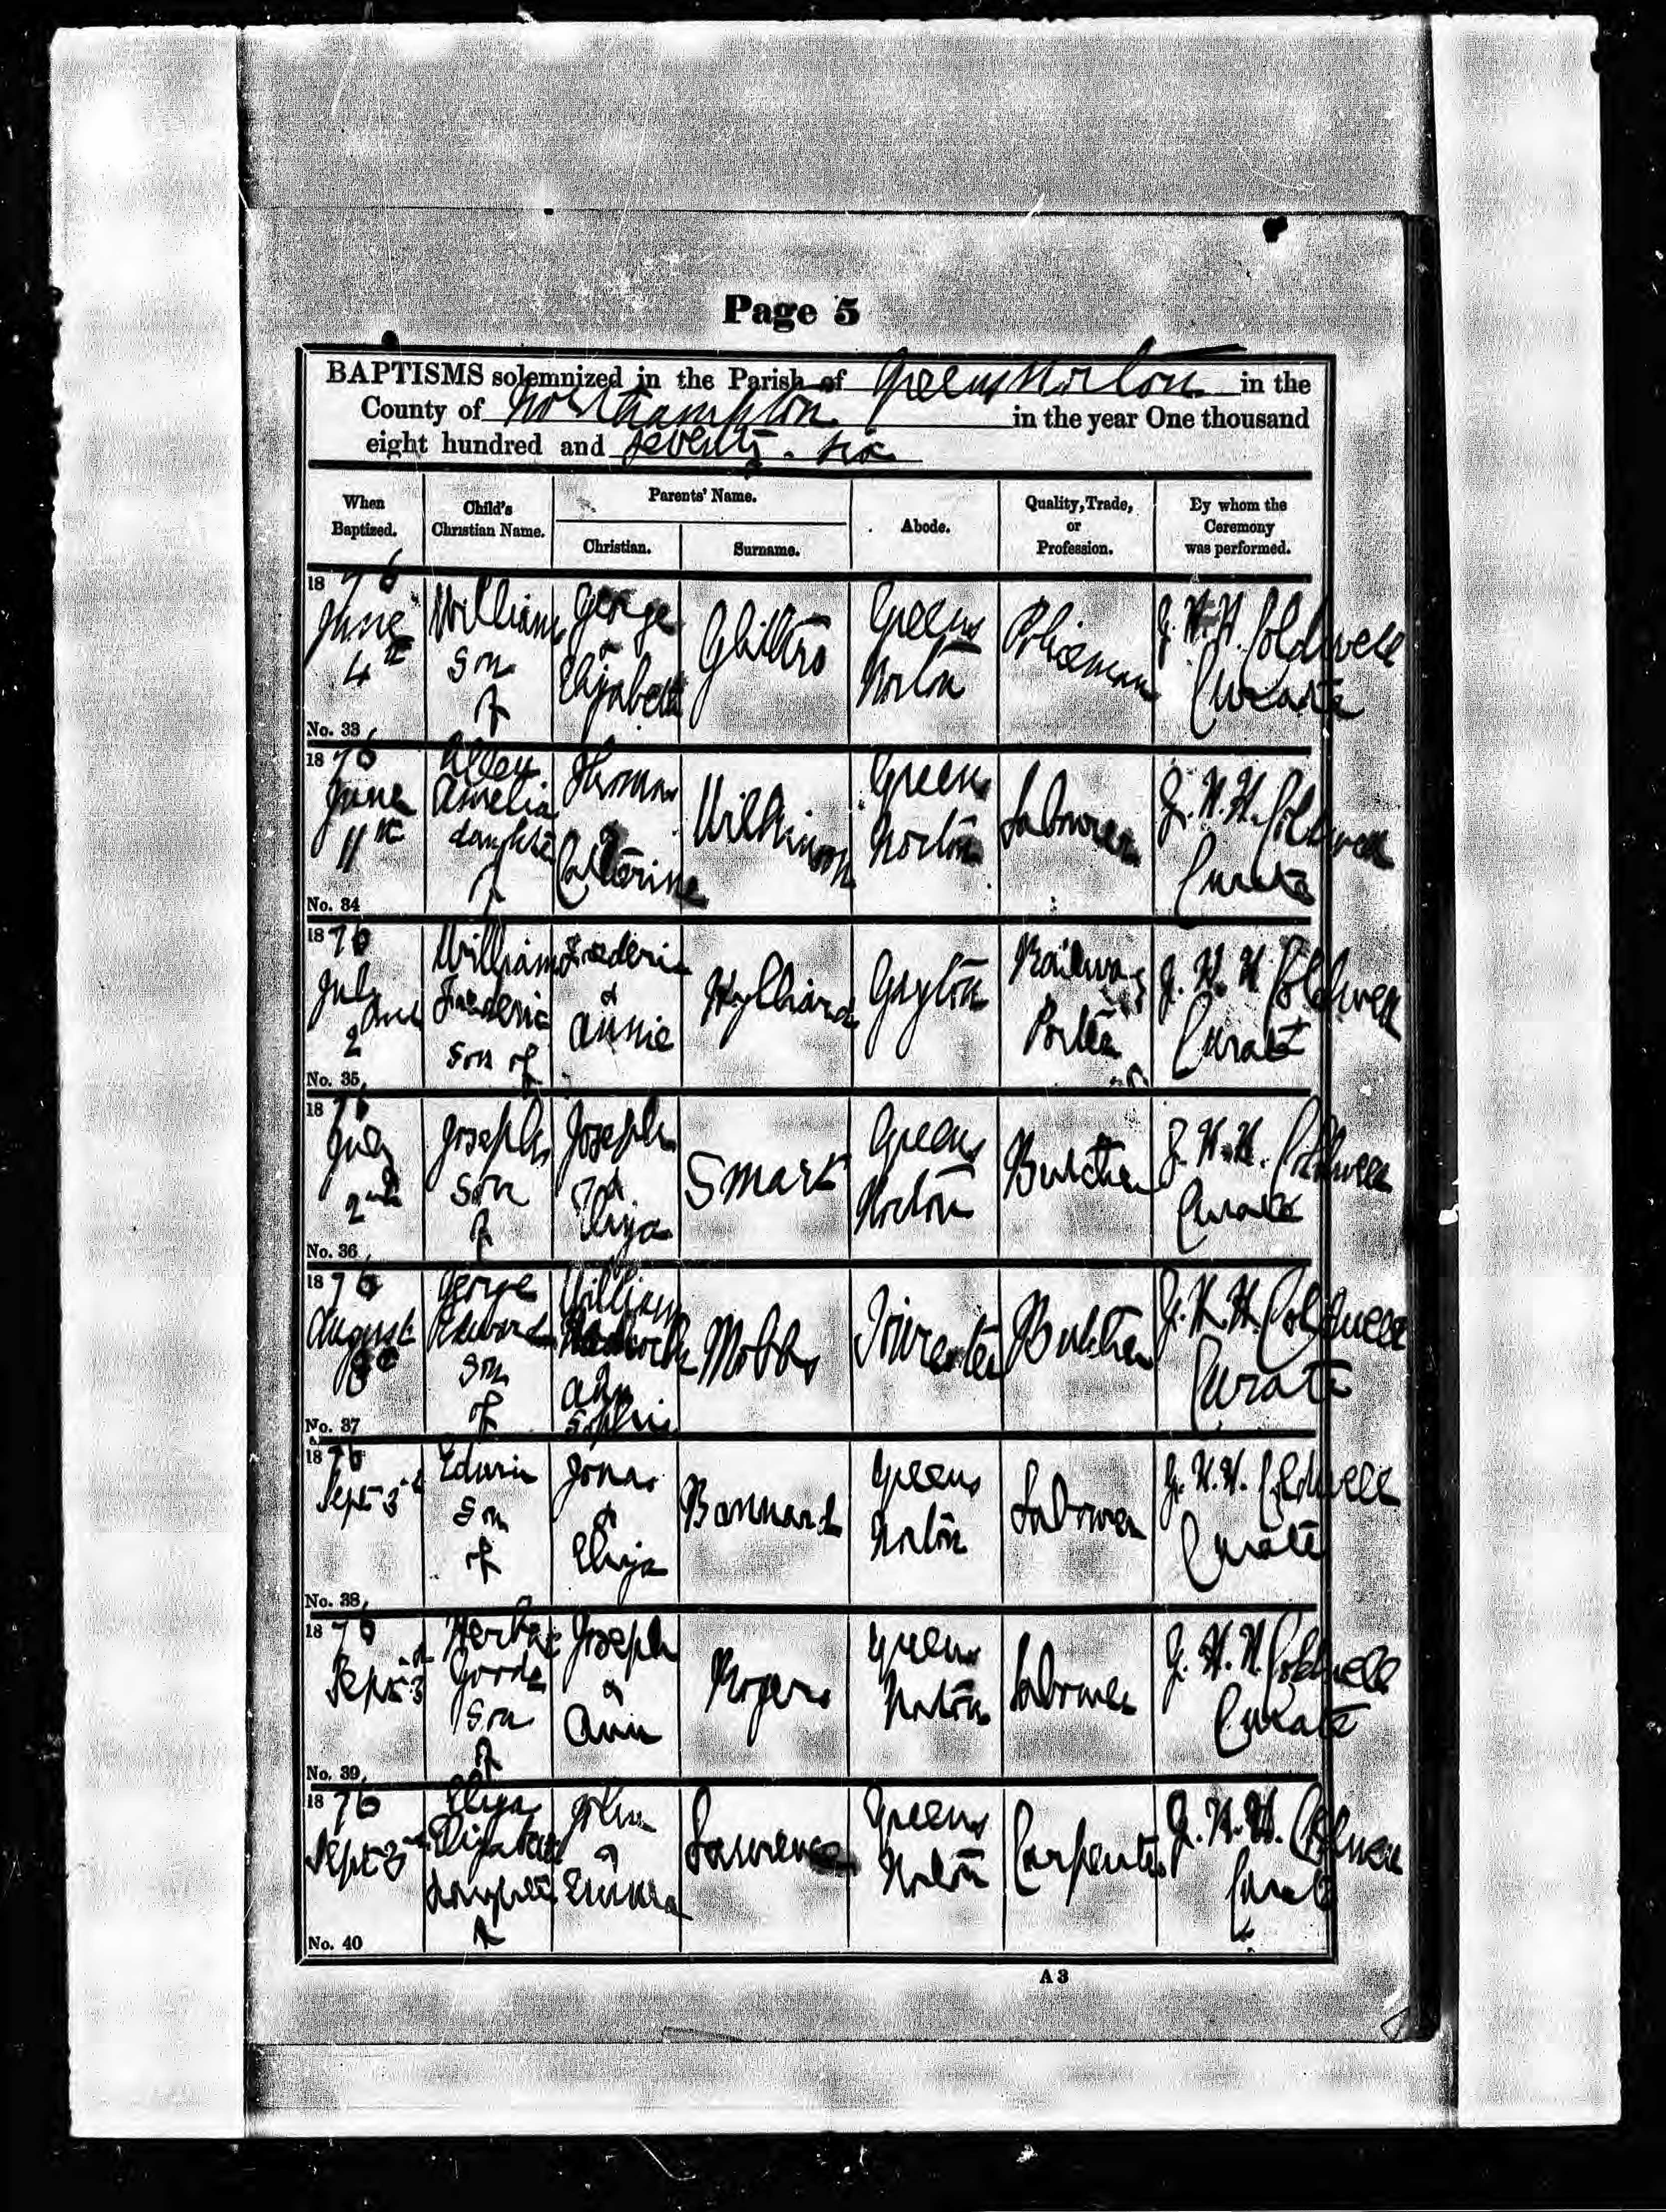 Page 5
BAPTISMS solemnized in the Parish of Greens Norton in the
County of Northampton in the year One thousand
eight hundred and seventy-six
When Baptized. Child's Christian Name. Parents' Name. Abode. Quality, Trade, or Profession. By whom the Ceremony was performed.
Christian. Surname.
1876 June 4th William son of George & Elizabeth Greens Norton Policeman J. H. H. Coldwell Curate
No. 33
1876 June 11th Amelia daughter of Thomas Catherine Wilkinson Greens Norton Labourer J. H. H. Coldwell Curate
No. 34
1876 July 2nd William Frederic son of Frederic & Annie Hylliard Gayton Railway Porter J. H. H. Coldwell Curate
No. 35
1876 July 2nd Joseph son of Joseph & Eliza Smart Greens Norton Butcher J. H. H. Coldwell Curate
No. 36
1876 August George Edward son of William Sophia Mobbs Towcester Butcher J. H. H. Coldwell Curate
No. 37
1876 Sept 3d Edwin son of Jonas & Eliza Bannard Greens Norton Labourer J. H. H. Coldwell Curate
No. 38
1876 Sept 3d Herbert Goode son of Joseph & Ann Rogers Greens Norton Labourer J. H. H. Coldwell Curate
No. 39
1876 Sept 3d Eliza Elizabeth daughter of John & Emma Lawrence Greens Norton Carpenter J. H. H. Coldwell Curate
No. 40
A 3